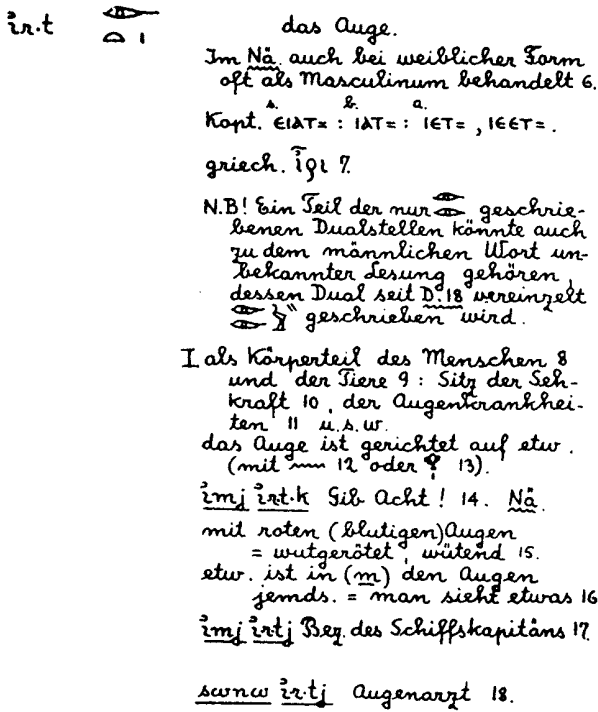 ỉr·t 𓁹𓏏𓏤 das Auge.
Im Nä. auch bei weiblicher Form
oft als Masculinum behandelt 6.
s. b. a.
Kopt. ⲈⲒⲀⲦ= : ⲒⲀⲦ= : ⲒⲈⲦ= , ⲒⲈⲈⲦ= .
griech. ῑρι 7.
N.B! Ein Teil der nur 𓁹𓁹 geschrie-
benen Dualstellen könnte auch
zu dem männlichen Wort un-
bekannter Lesung gehören,
dessen Dual seit D.18 vereinzelt
𓁹𓁹 geschrieben wird.
I als Körperteil des Menschen 8
und der Tiere 9 : Sitz der Seh-
kraft 10, der Augenkrankhei-
ten 11 u.s.w.
das Auge ist gerichtet auf etw.
(mit 𓈖 12 oder 𓁷 13).
ỉmj ỉrt·k Gib Acht ! 14. Nä.
mit roten (blutigen) Augen
= wutgerötet, wütend 15.
etw. ist in (m) den Augen
jemds. = man sieht etwas 16
ỉmj ỉrtj Bez. des Schiffskapitäns 17.
swnw ỉr·tj Augenarzt 18.